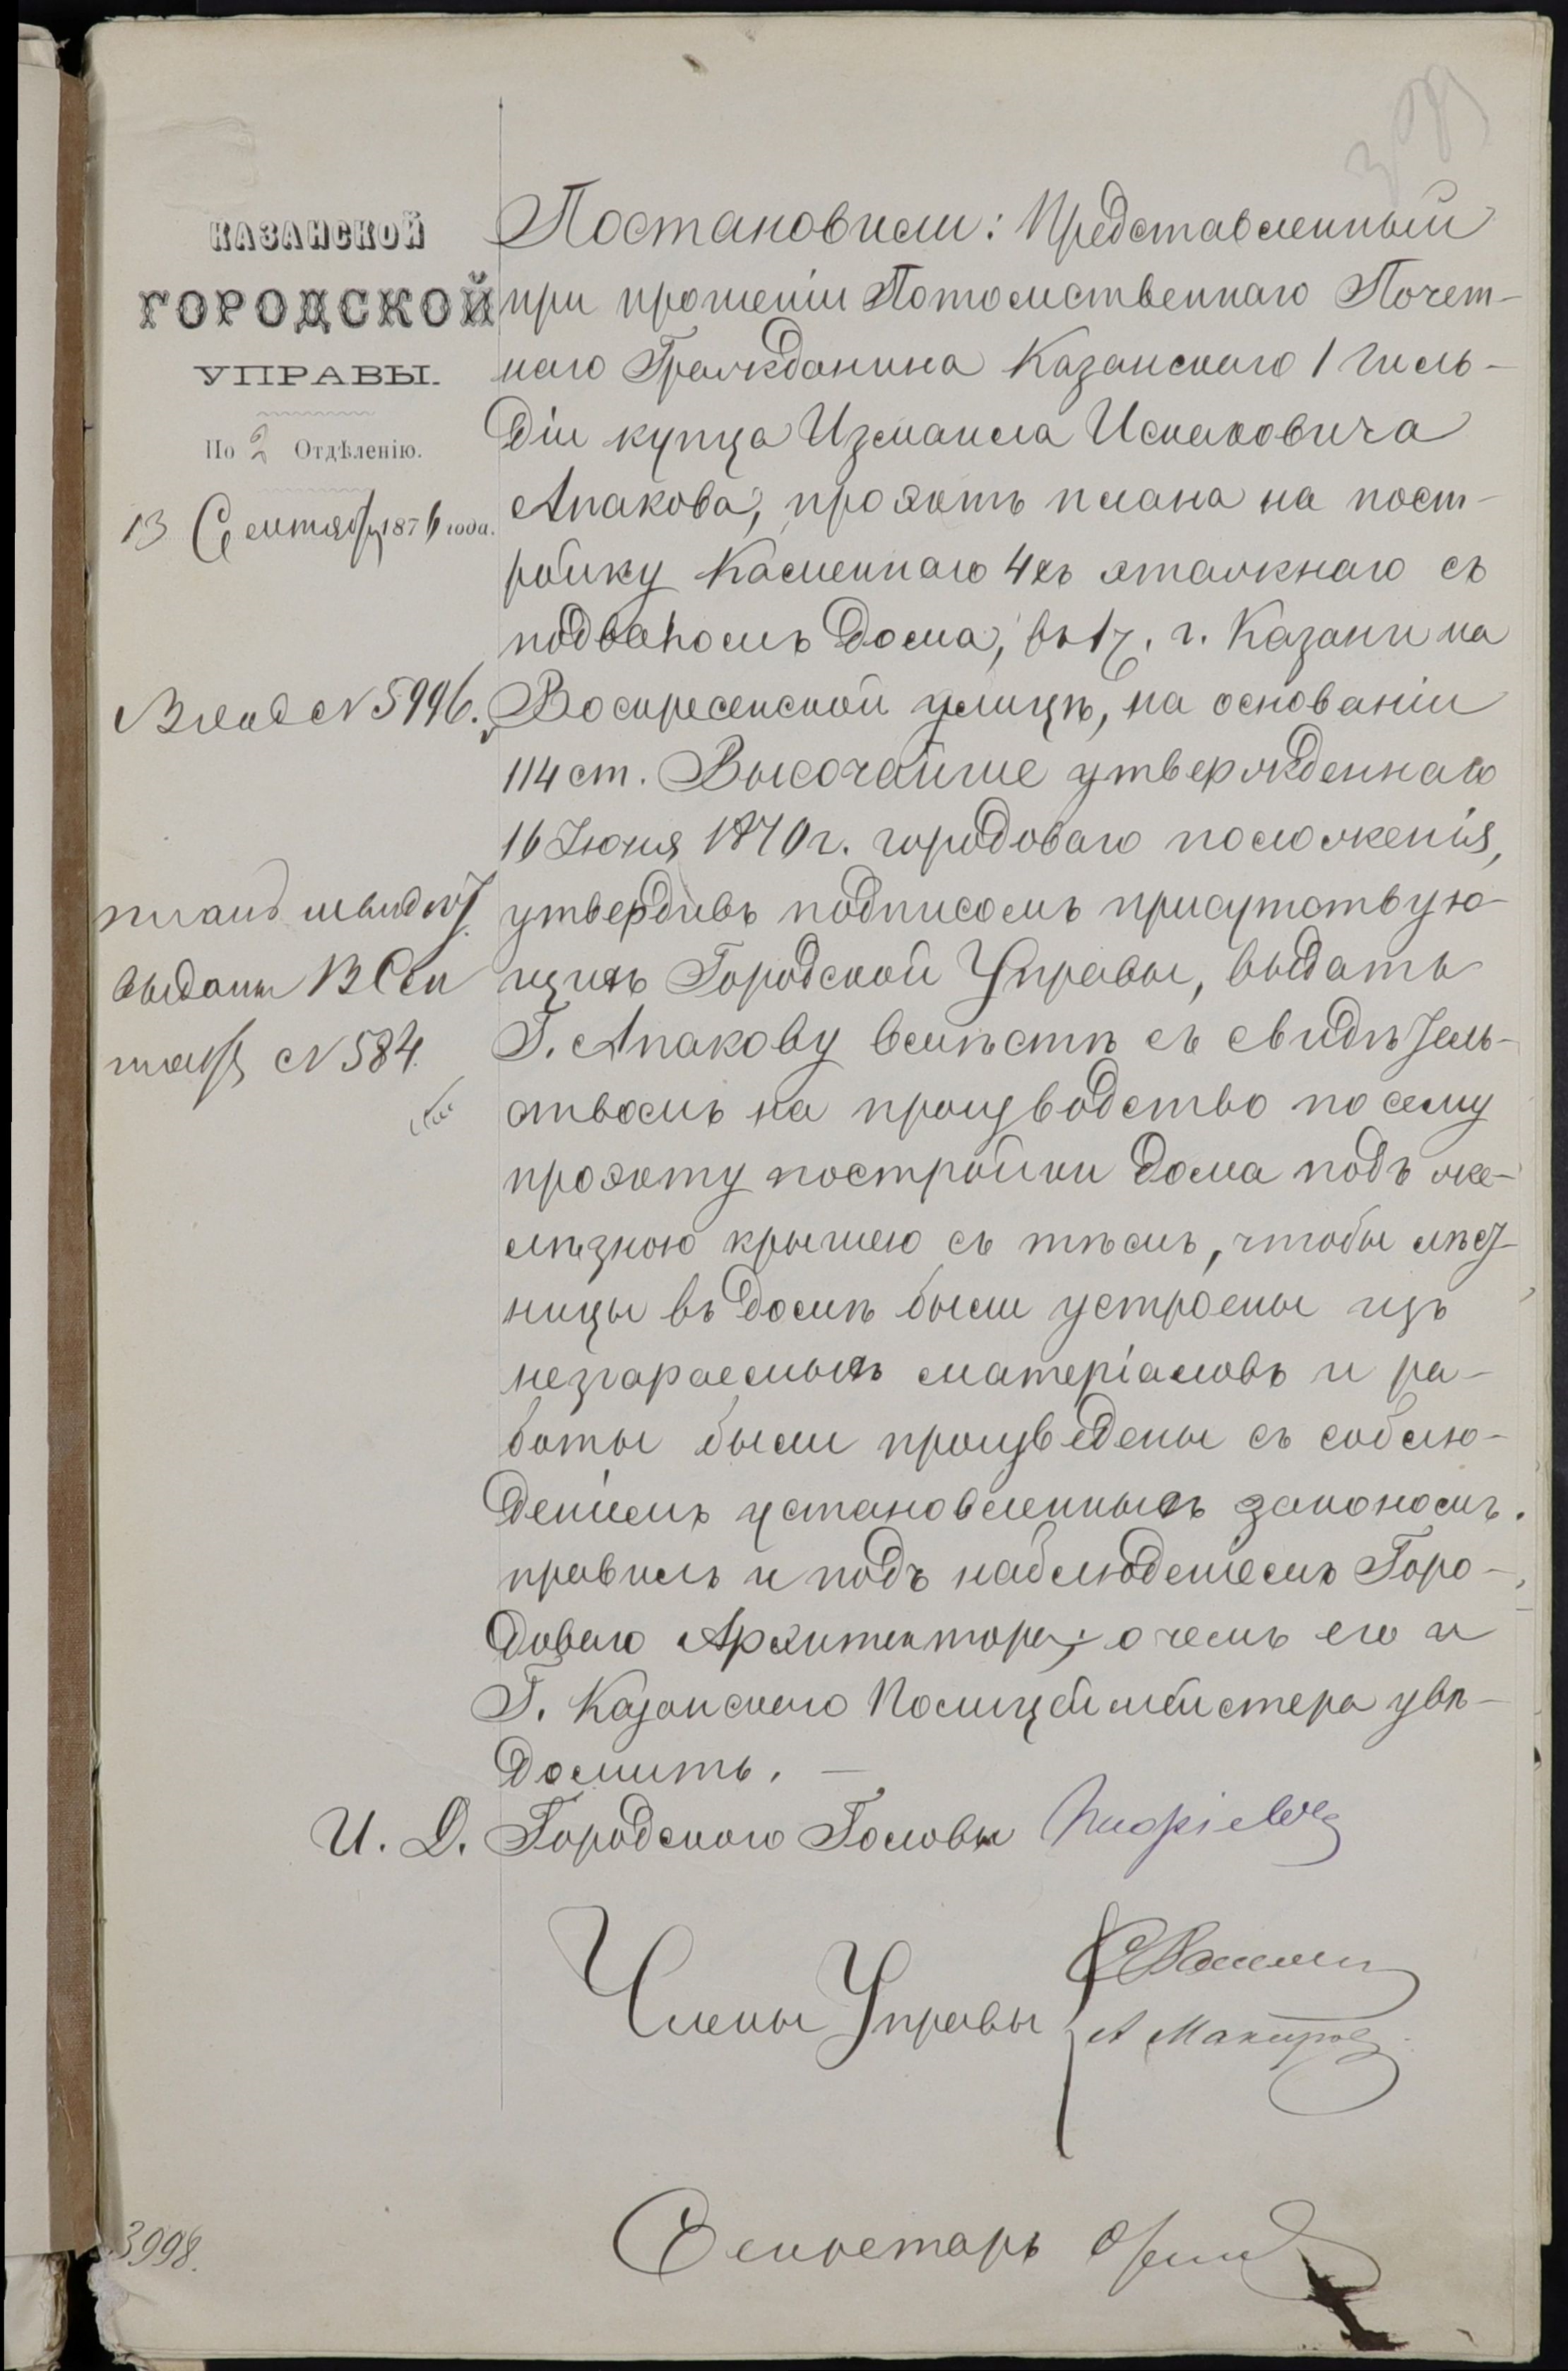 КАЗАНСКОЙ
ГОРОДСКОЙ
УПРАВЫ.
По 2 Отдѣленію.
13 Сентября 1876 года.
Вход № 5996.
планъ и свид
выданы 13 Сен
тября № 584.
Постановили: Представленный
при прошеніи Потомственнаго Почет-
наго Гражданина Казанскаго 1 гиль-
діи купца Измаила Исхаковича
Апакова, проэктъ плана на пост-
ройку каменнаго 4хъ этажнаго съ
подваломъ дома, въ 1 ч. г. Казани на
Воскресенской улицѣ, на основаніи
114 ст. Высочайше утвержденнаго
16 Іюня 1870 г. городоваго положенія,
утвердивъ подписомъ присутствую-
щихъ Городской Управы, выдать
Г. Апакову вмѣстѣ съ свидѣтель-
ствомъ на производство по сему
проэкту постройки дома подъ же-
лѣзною крышею съ тѣмъ, чтобы лѣст-
ницы въ домѣ были устроены изъ
незгараемыхъ матеріаловъ и ра-
боты были произведены съ соблю-
деніемъ установленныхъ закономъ
правилъ и подъ наблюденіемъ Горо-
доваго Архитектора; о чемъ его и
Г. Казанскаго Полицеймейстера увѣ-
домить. —
И. Д. Городскаго Головы
Члены Управы
А Макаровъ
Секретарь
3998.